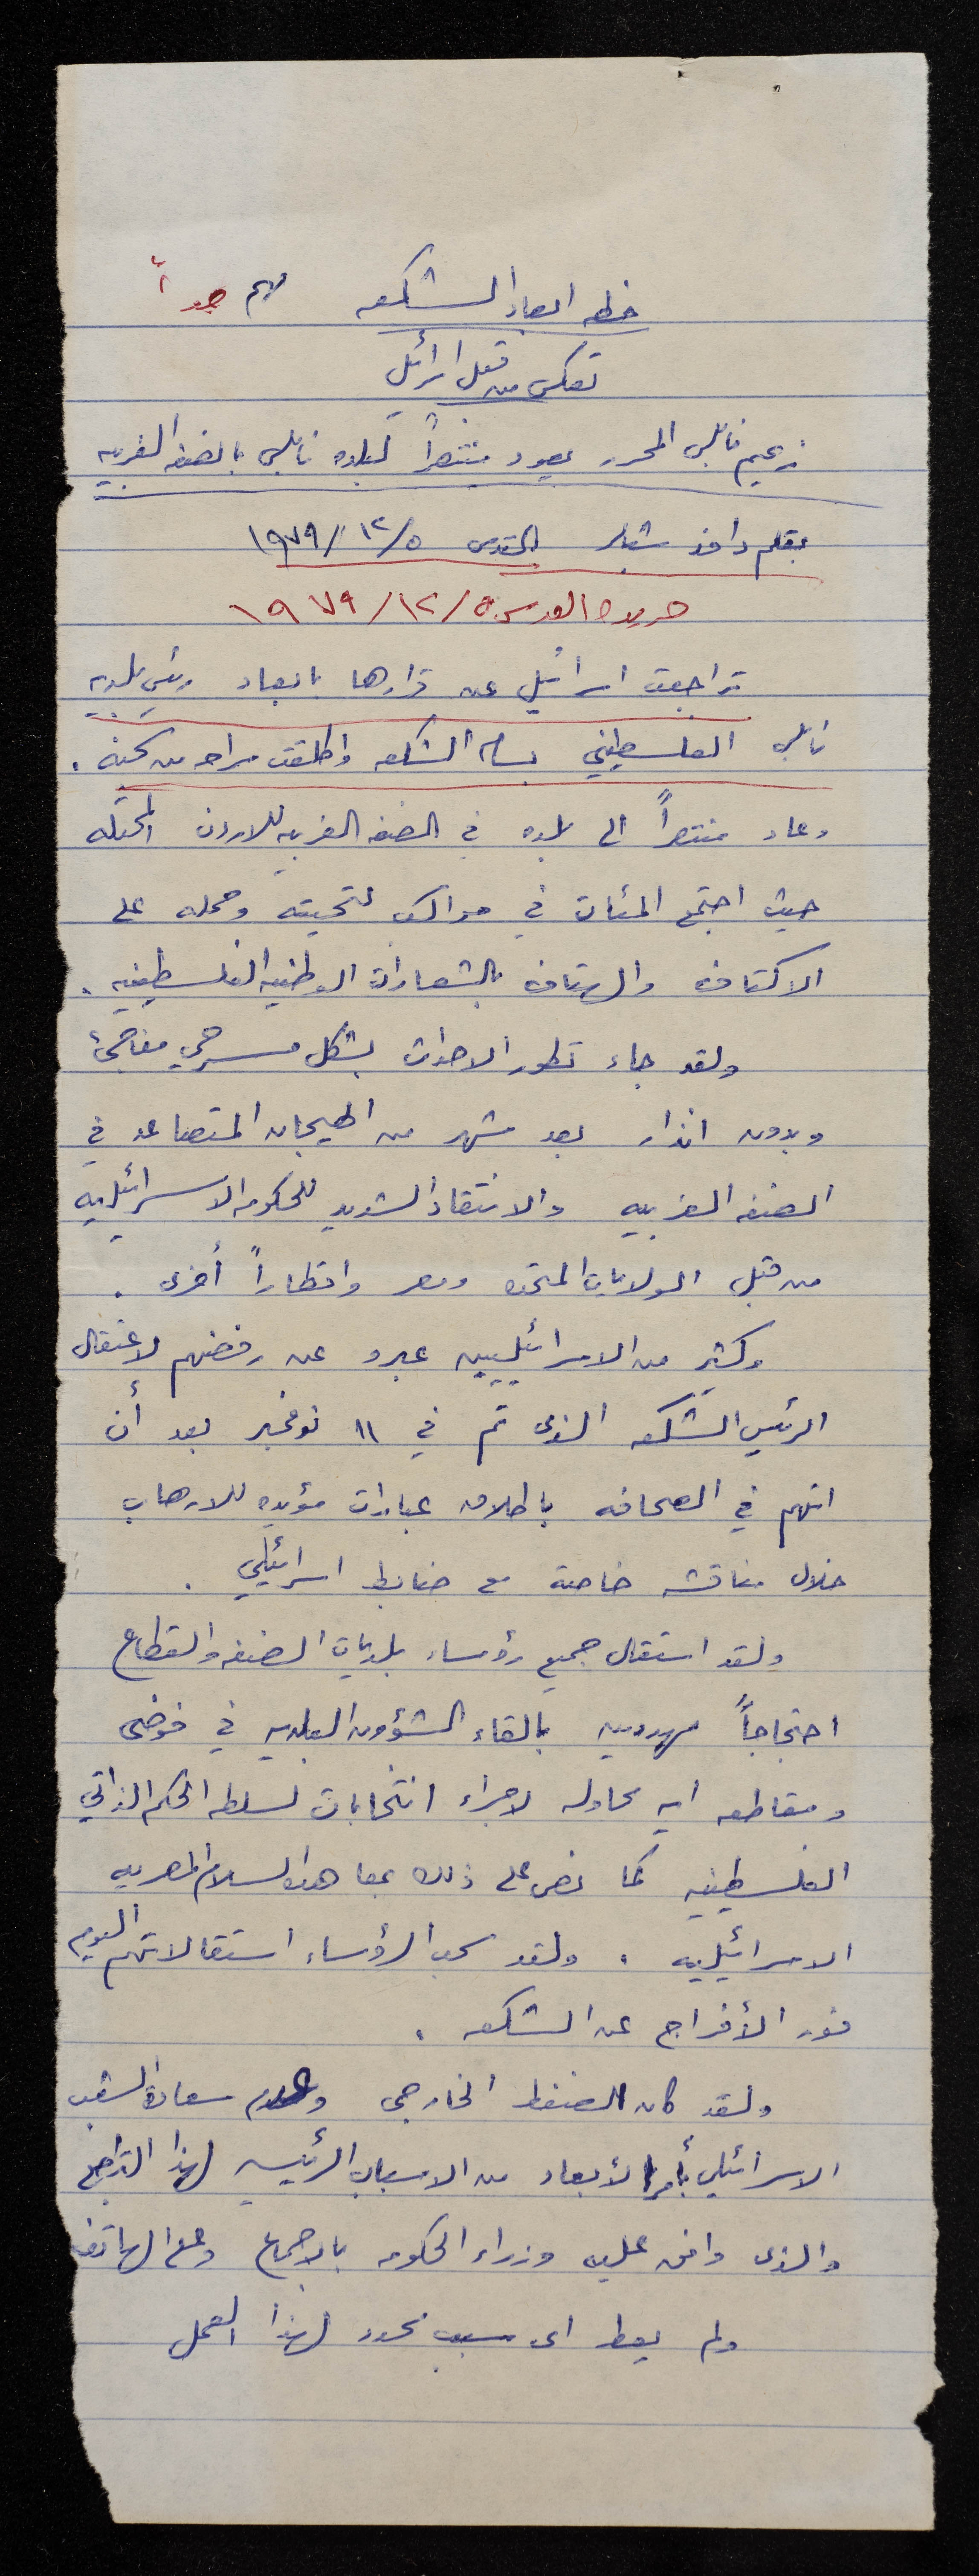 خطه ابعاد الشكعه مهم جداً
تعكس من قبل اسرائيل
زعيم نابلس المحرر يعود منتصراً لبلده نابلس بالضفه الغربيه
بقلم دافد شبلر القدس ١٢/٥/ ١٩٧٩
جريدة القدس ٥/١٢/١٩٧٩
تراجعت اسرائيل عن قرارها بابعاد رئيس بلديه
نابلس الفلسطيني بسام الشكعه واطلقت سراحه من سجنه .
وعاد منتصراً الى بلده في الضفه الغربيه للاردن المحتله
حيث اجتمع المئات في مواكب لتحيته وحمله على
الاكتاف والهتاف بالشعارات الوطنيه الفلسطينيه .
ولقد جاء تطور الاحداث بشكل مسرحي مفاجئ
وبدون انذار بعد شهر من الهيجان المتصاعد في
الضفه الغربيه والانتقاد الشديد للحكومه الاسرائيليه
من قبل الولايات المتحده ومصر واقطاراً أخرى .
وكثير من الاسرائيليين عبرو عن رفضهم لاعتقال
الرئيس الشكعه الذى تم في ١١ نوفمبر بعد أن
اتهم في الصحافه باطلاق عبارات مؤيده للارهاب
خلال مناقشه خاصة مع ضابط اسرائيلي .
ولقد استقال جميع رؤساء بلديات الضفه والقطاع
احتجاجاً مهددين بالقاء الشؤون البلديه في فوضى
ومقاطعه ايه محاوله لاجراء انتخابات لسلطه الحكم الذاتي
الفلسطينيه كما نص على ذلك بمعاهده السلام المصريه
الاسرائيليه . ولقد سحب الرؤساء استقالاتهم اليوم
فور الأفراج عن الشكعه .
ولقد كان الضغط الخارجي وعدم سعادة الشعب
الاسرائيلي بأمر الأبعاد من الاسباب الرئيسيه لهذا التراجع
والذى وافق عليه وزراء الحكومه بالاجماع وعلى الهاتف
ولم يعط اى سبب محدد لهذا العمل